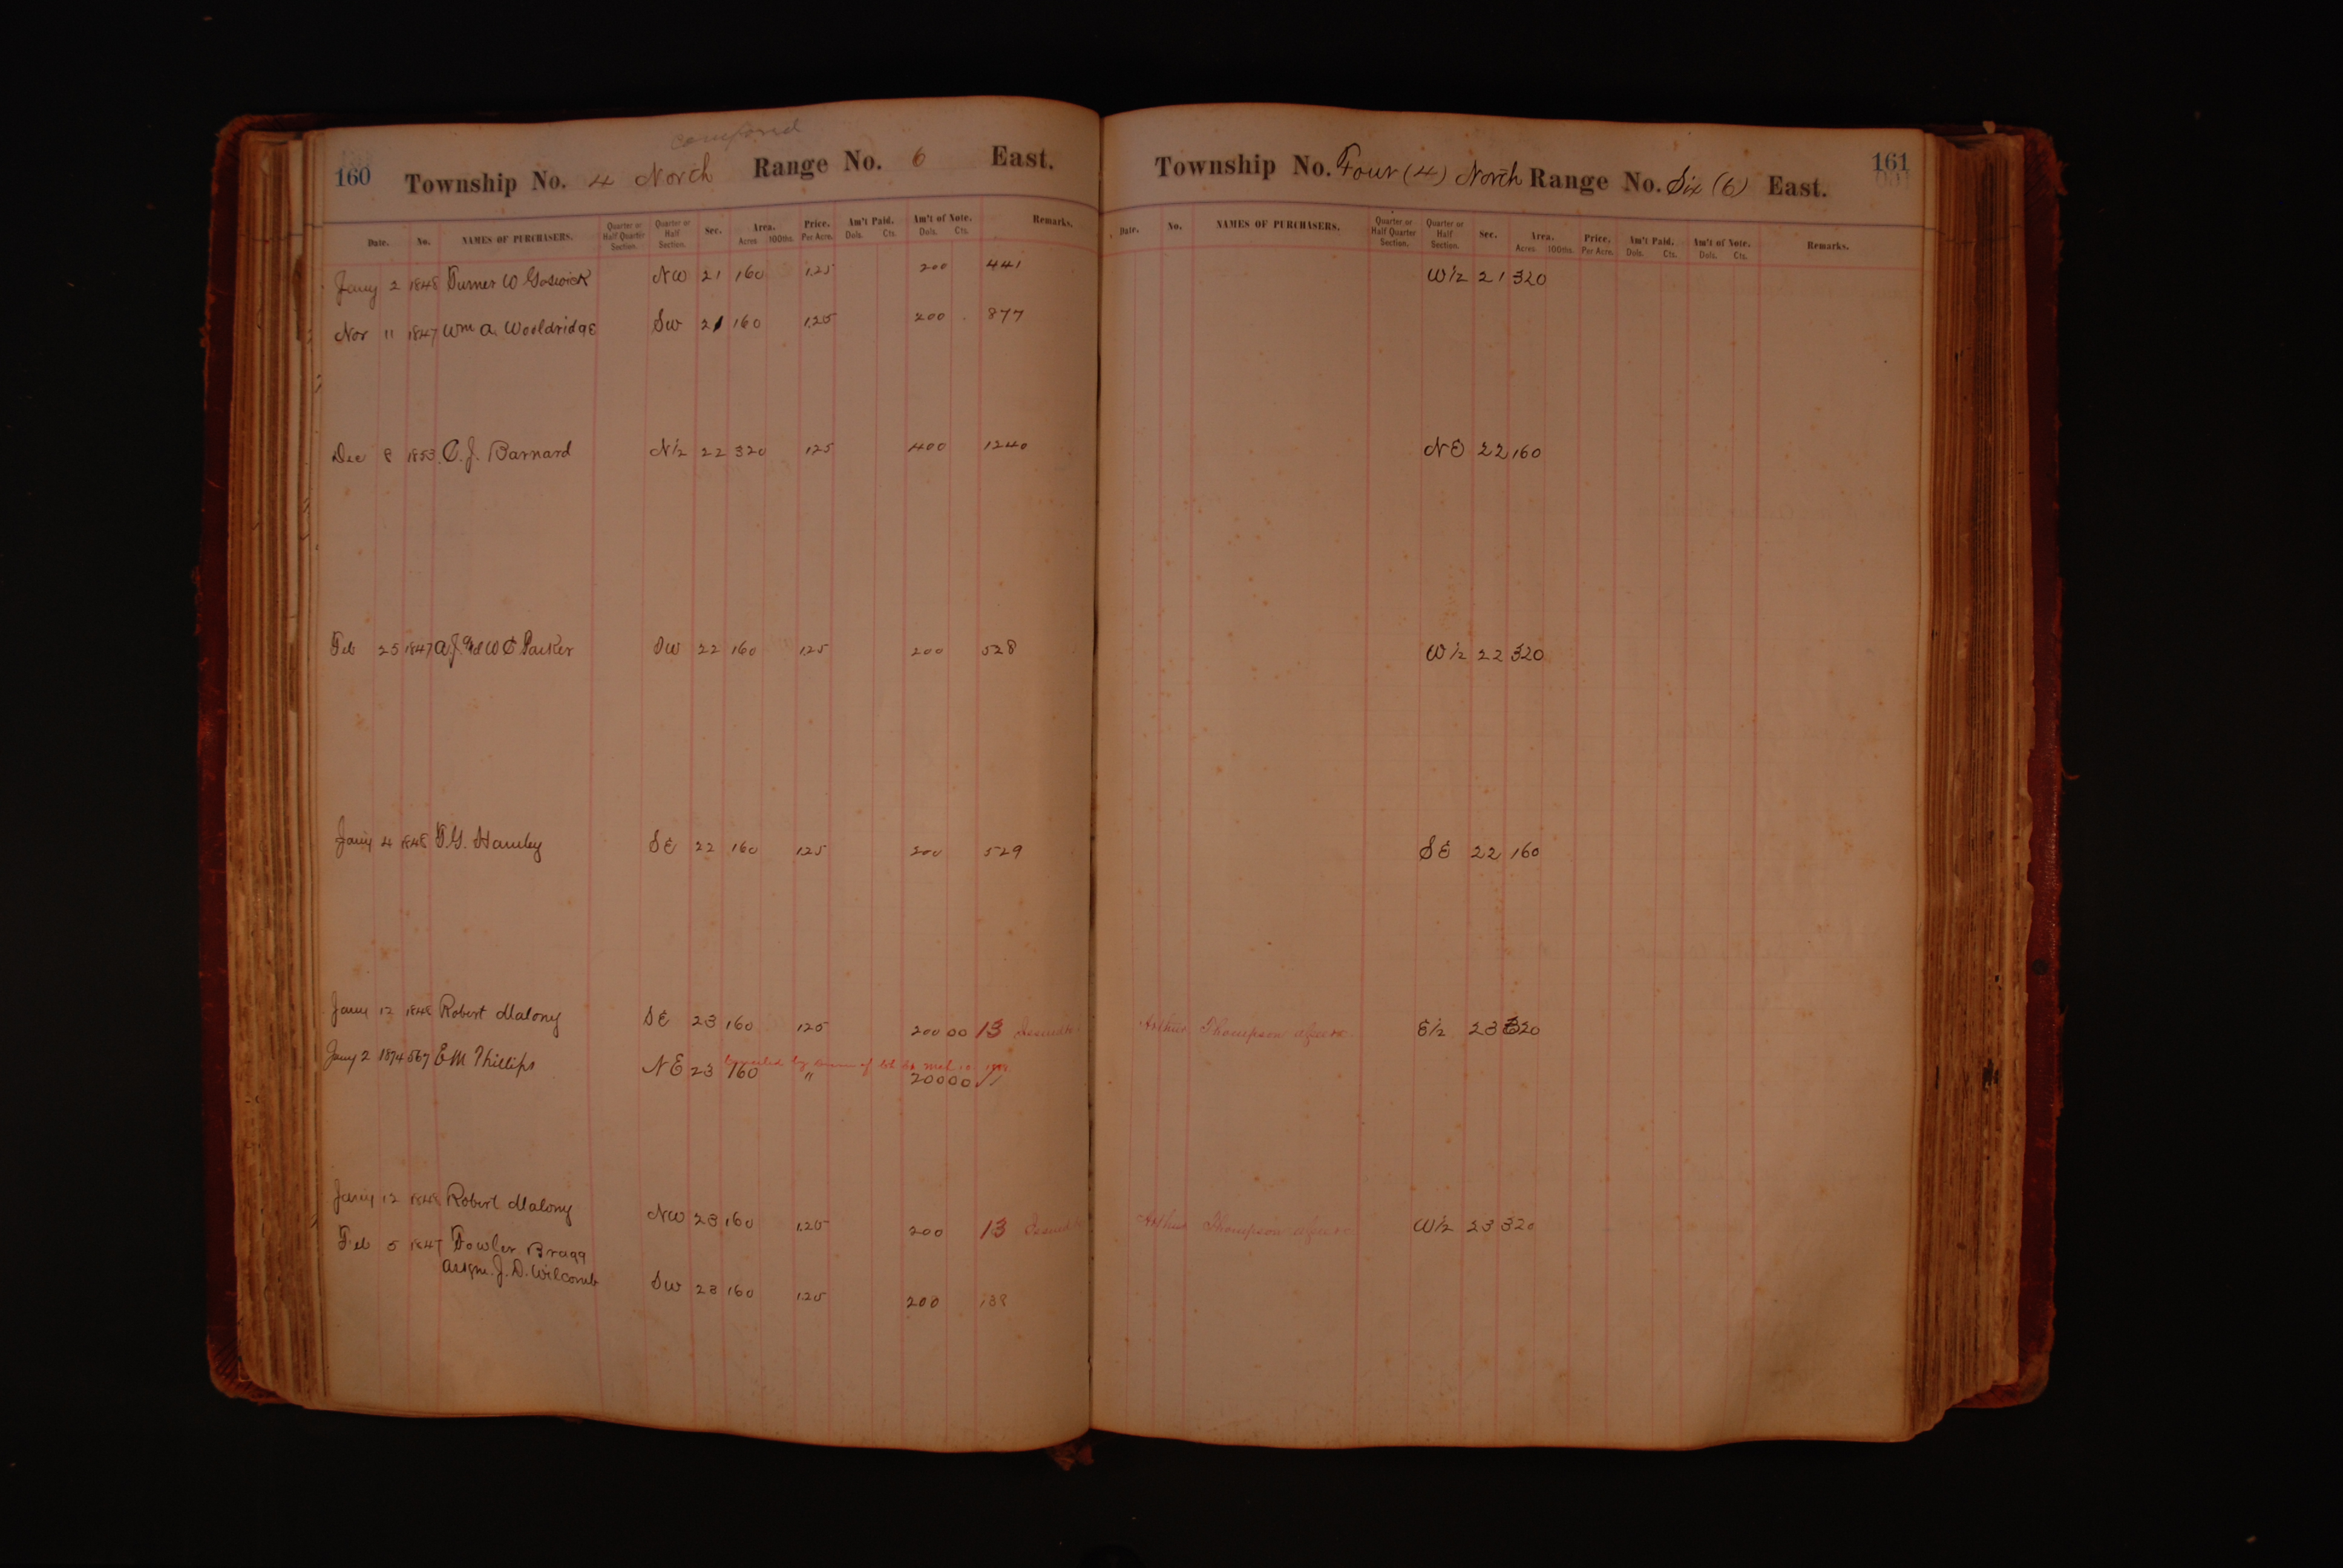 compared
160 Township No. 4 North Range No. 6 East.
Date. No. NAMES OF PURCHASERS. Quarter or Half Quarter Section. Quarter or Half Section. Sec. Area. Acres 100ths. Price. Per Acre. Am't Paid. Dols. Cts. Am't of Note. Dols. Cts. Remarks.
Jany 2 1848 Turner W Goswick NW 21 160 1.25 200 441
Nov 11 1847 Wm A. Wooldridge SW 21 160 1.25 200 877
Dec 8 1853 C. J. Barnard N½ 22 320 1.25 400 1240
Feb 25 1847 A.J. and W C Parker SW 22 160 1.25 200 528
Jany 4 1848 T.G. Hawley SE 22 160 1.25 200 529
Jany 12 1848 Robert Malony SE 23 160 1.25 200 00 13
Canceled by
Jany 2 1874 567 EM Phillips NE 23 160 " 200 00
Jany 12 1848 Robert Malony NW 23 160 1.25 200 13
Feb 5 1847 Fowler Bragg
Assgne. J. D. Wilcomb SW 23 160 1.25 200 138
Township No. Four (4) North Range No. Six (6) East. 161
Date. No. NAMES OF PURCHASERS. Quarter or Half Quarter Section. Quarter or Half Section. Sec. Area. Acres. 100ths. Price. Per Acre. Am't Paid. Dols. Cts. Am't of Note. Dols. Cts. Remarks.
W½ 21 320
NE 22 160
W½ 22 320
SE 22 160
Arthur Thompson E½ 23 320
Arthur Thompson W½ 23 320